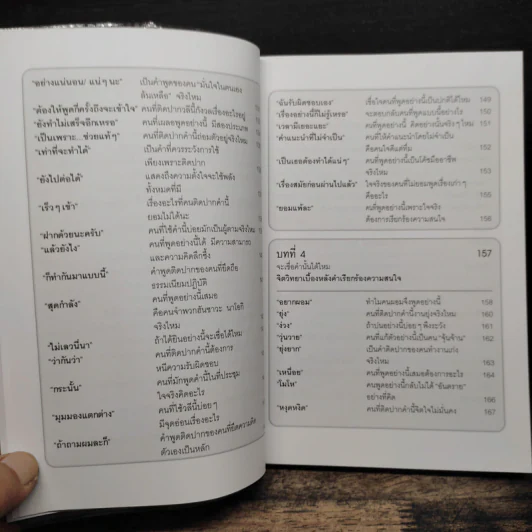 "อย่างแน่นอน/ แน่ๆ นะ" เป็นคำพูดของคน "มั่นใจในตนเอง
ล้นเหลือ" จริงไหม
"ต้องให้พูดกี่ครั้งถึงจะเข้าใจ" คนที่ติดปากวลีนี้กังวลเรื่องอะไรอยู่
"ยังทำไม่เสร็จอีกเหรอ" คนที่เผลอพูดอย่างนี้ มีสองประเภท
"เป็นเพราะ...ช่วยแท้ๆ" คนที่ติดปากคำนี้ถ่อมตัวอยู่จริงไหม
"เท่าที่จะทำได้" เป็นคำที่ควรระวังการใช้
เพียงเพราะติดปาก
"ยังไปต่อได้" แสดงถึงความตั้งใจจะใช้พลัง
ทั้งหมดที่มี
"เร็วๆ เข้า" เรื่องอะไรที่คนติดปากคำนี้
ยอมไม่ได้นะ
"ฝากด้วยนะครับ" คนที่ใช้คำนี้บ่อยมักเป็นผู้ตามจริงไหม
"แล้วยังไง" คนที่พูดอย่างนี้ได้ มีความสามารถ
และความคิดลึกซึ้ง
"ก็ทำกันมาแบบนี้" คำพูดติดปากของคนที่ยึดถือ
ธรรมเนียมปฏิบัติ
"สุดกำลัง" คนที่พูดอย่างนี้เสมอ
คือคนจำพวกฮันซาวะ นาโอกิ
จริงไหม
"ไม่เลวนี่นา" ถ้าได้ยินอย่างนี้จะเชื่อได้ไหม
"ว่ากันว่า" คนที่ติดปากคำนี้ต้องการ
หนีความรับผิดชอบ
"กระนั้น" คนที่มักพูดคำนี้ในที่ประชุม
ใจจริงคืออะไร
"มุมมองแตกต่าง" คนที่ใช้วลีนี้บ่อยๆ
มีจุดอ่อนเรื่องอะไร
"ถ้าถามผมละก็" คำพูดติดปากของคนที่ยึดความคิด
ตัวเองเป็นหลัก
"ฉันรับผิดชอบเอง" เชื่อใจคนที่พูดอย่างนี้เป็นปกติได้ไหม 149
"เรื่องอย่างนี้ก็ไม่รู้เหรอ" จะตอบกลับคนที่พูดแบบนี้อย่างไร 150
"เวลามีเยอะแยะ" คนที่พูดอย่างนี้ คิดอย่างนี้จริงๆ ไหม 151
"คำแนะนำที่ไม่จำเป็น" คนที่ให้คำแนะนำโดยไม่จำเป็น
คือคนใจดีแต่ที่ม 152
"เป็นเธอต้องทำได้แน่ๆ" คนที่พูดอย่างนี้เป็นโค้ชมืออาชีพ
จริงไหม 153
"เรื่องสมัยก่อนผ่านไปแล้ว" ใจจริงของคนที่ไม่ยอมพูดเรื่องเก่าๆ
คืออะไร 155
"ยอมแพ้ละ" คนที่พูดอย่างนี้เพราะใจจริง
ต้องการเรียกร้องความสนใจ 156
บทที่ 4 157
จะเชื่อคำนั้นได้ไหม
จิตวิทยาเบื้องหลังคำเรียกร้องความสนใจ
"อยากผอม" ทำไมคนผอมจึงพูดอย่างนี้ 158
"ยุ่ง" คนที่ติดปากคำนี้งานยุ่งจริงไหม 160
"ง่วง" ถ้าบ่นอย่างนี้บ่อยๆ พึงระวัง 161
"วุ่นวาย" คนที่แก้ตัวอย่างนี้เป็นคน "จุ้นจ้าน" 162
"ยุ่งยาก" เป็นคำติดปากของคนทำงานเก่ง
จริงไหม 163
"เหนื่อย" คนที่พูดอย่างนี้เสมอต้องการอะไร 164
"โมโห" คนพูดอย่างนี้กลับไม่ได้ "อันตราย"
อย่างที่คิด 166
"หงุดหงิด" คนที่ติดปากคำนี้จิตใจไม่มั่นคง 167